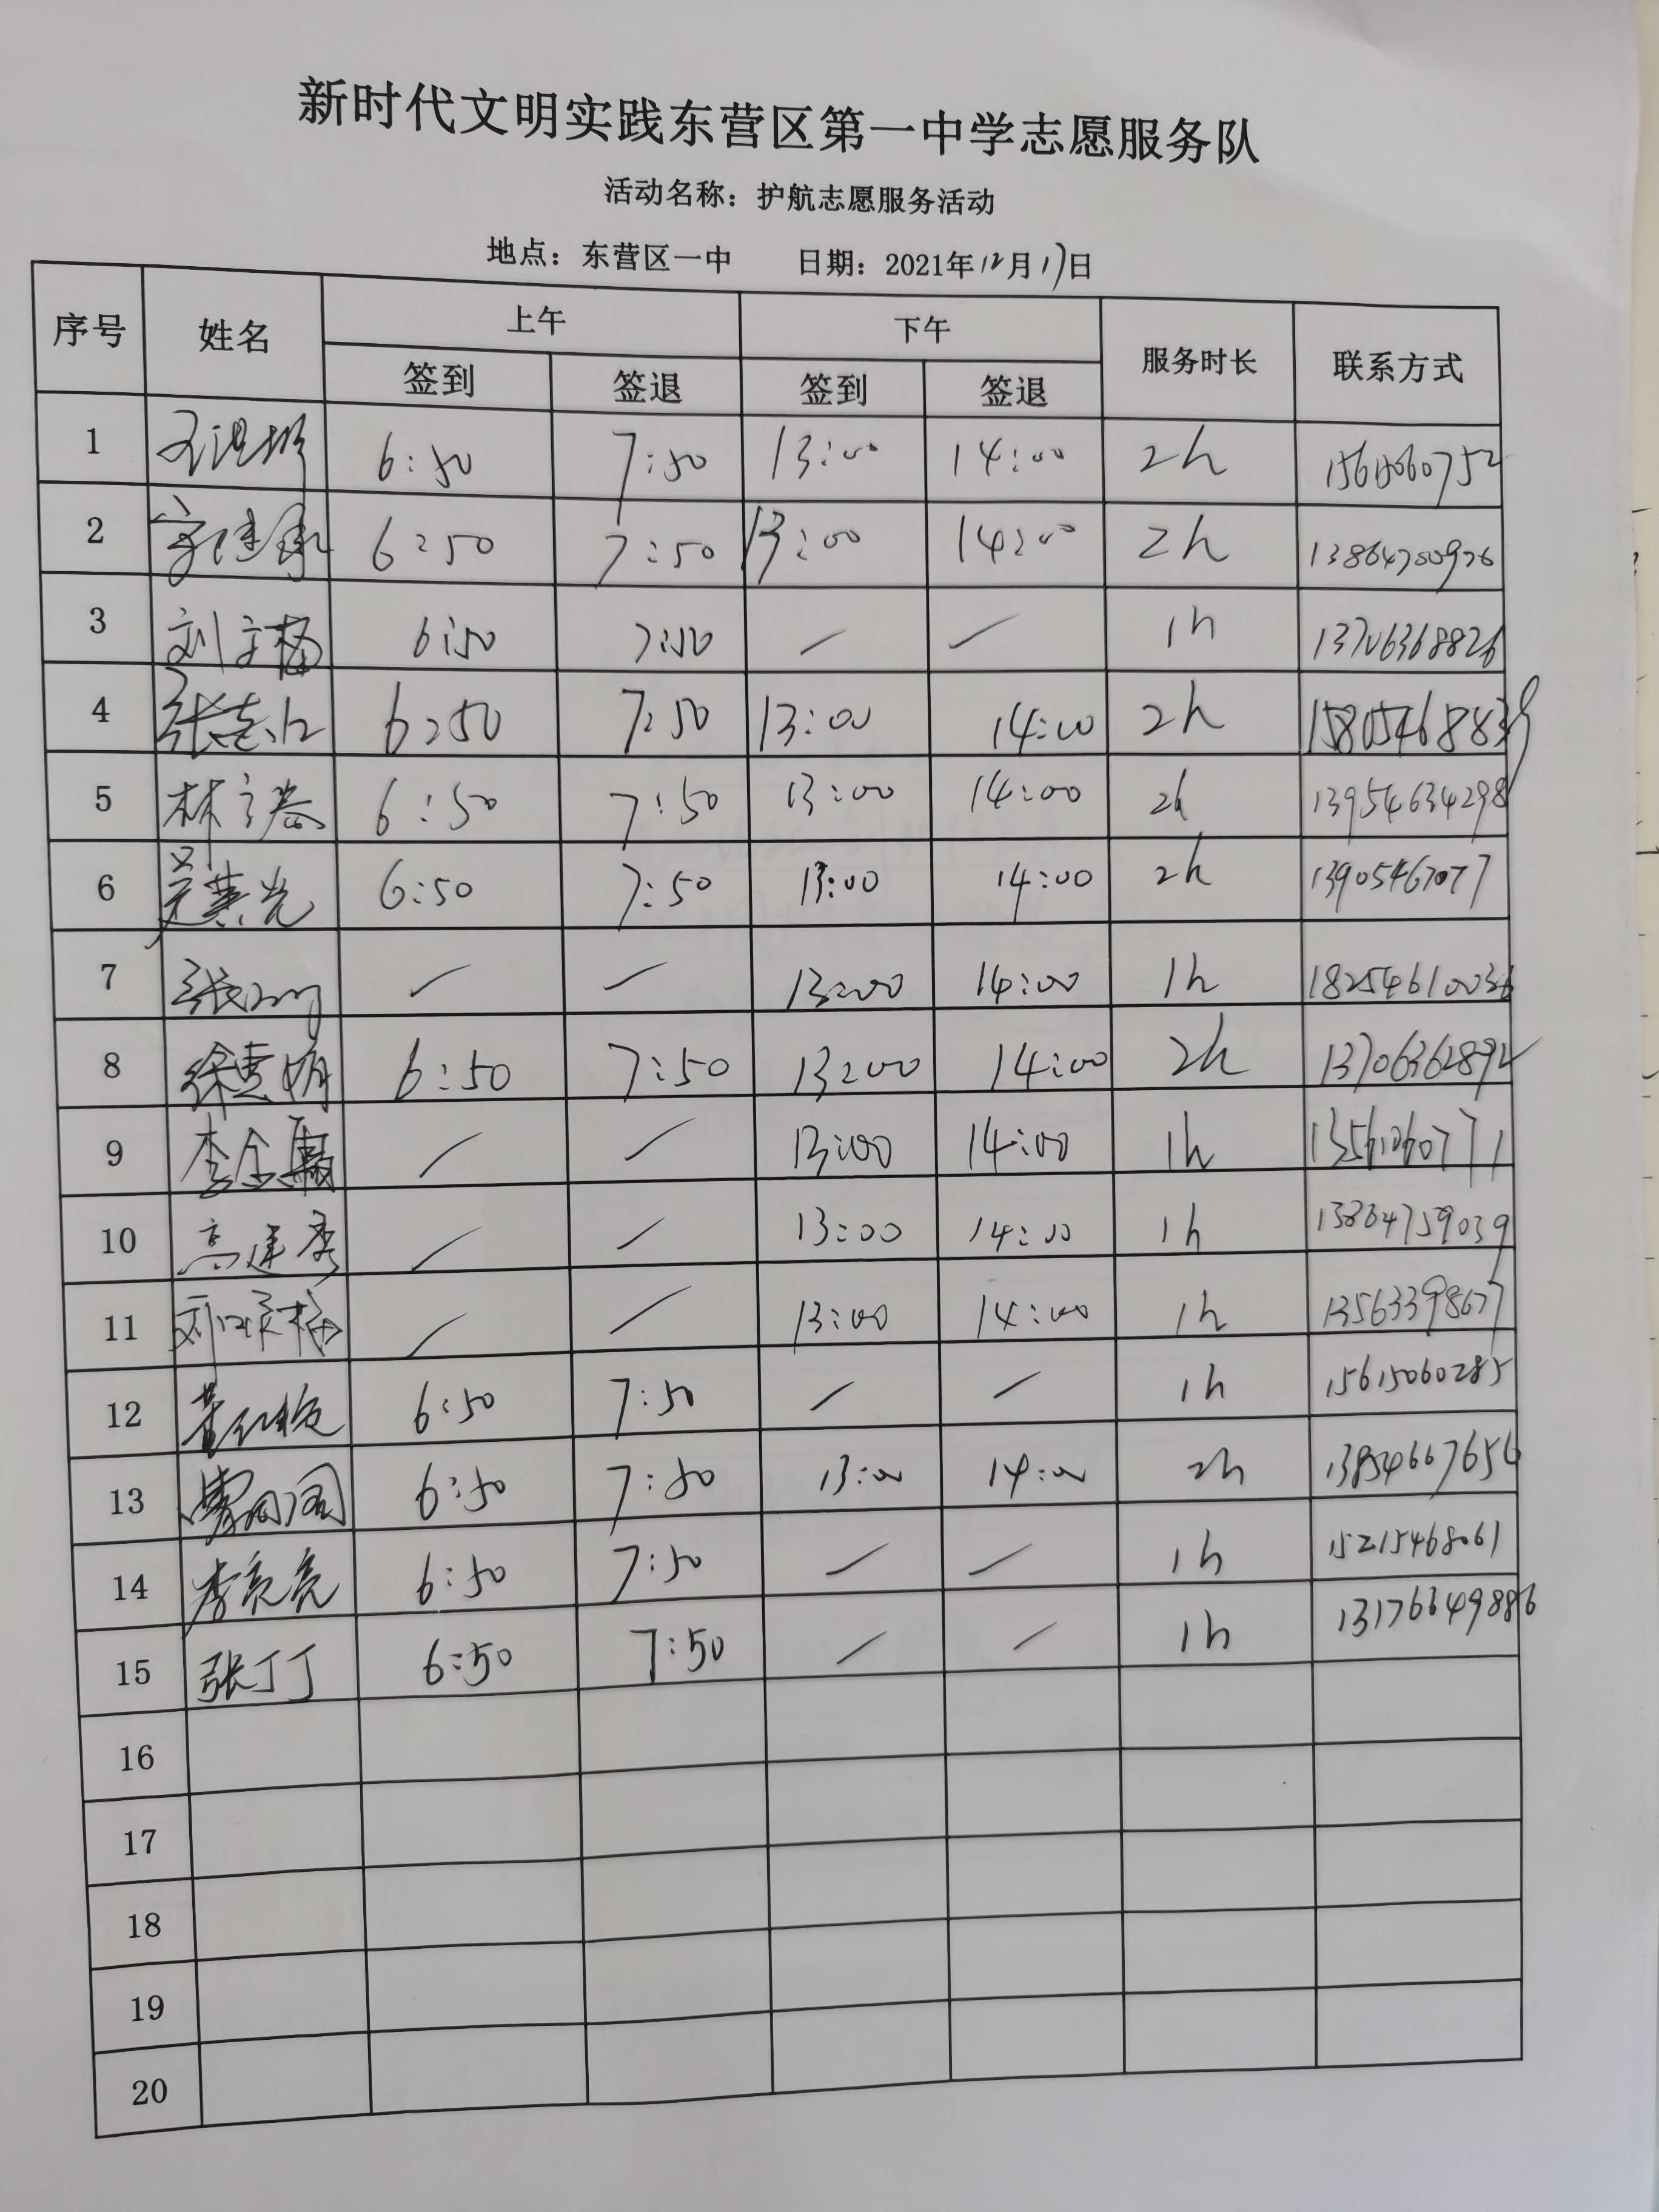 新时代文明实践东营区第一中学志愿服务队
活动名称：护航志愿服务活动
地点：东营区一中 日期：2021年12月17日
序号 姓名 上午 下午 服务时长 联系方式
签到 签退 签到 签退
1 6:50 7:50 13:00 14:00 2h
2 6:50 7:50 13:00 14:00 2h 13864700926
3 刘文梅 6:50 7:50 / / 1h 13706368826
4 张志江 6:50 7:50 13:00 14:00 2h 15805468839
5 6:50 7:50 13:00 14:00 2h 13954634298
6 6:50 7:50 13:00 14:00 2h 13905467077
7 / / 13:00 14:00 1h 18254610036
8 徐惠明 6:50 7:50 13:00 14:00 2h 13706362892
9 / / 13:00 14:00 1h 13561060771
10 高建秀 / / 13:00 14:00 1h 13864759039
11 / / 13:00 14:00 1h 13563398677
12 6:50 7:50 / / 1h 15615060285
13 6:50 7:50 13:00 14:00 2h 13854667656
14 李亮亮 6:50 7:50 / / 1h 15215468061
15 张丁丁 6:50 7:50 / / 1h 13176649886
16
17
18
19
20